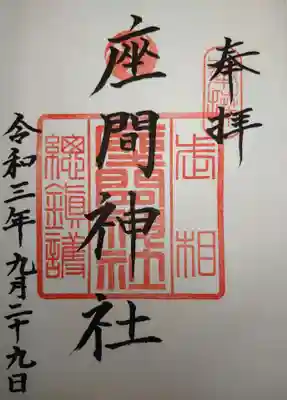 奉拝
武相
座間神社
總鎮護
座間神社
令和三年九月二十九日